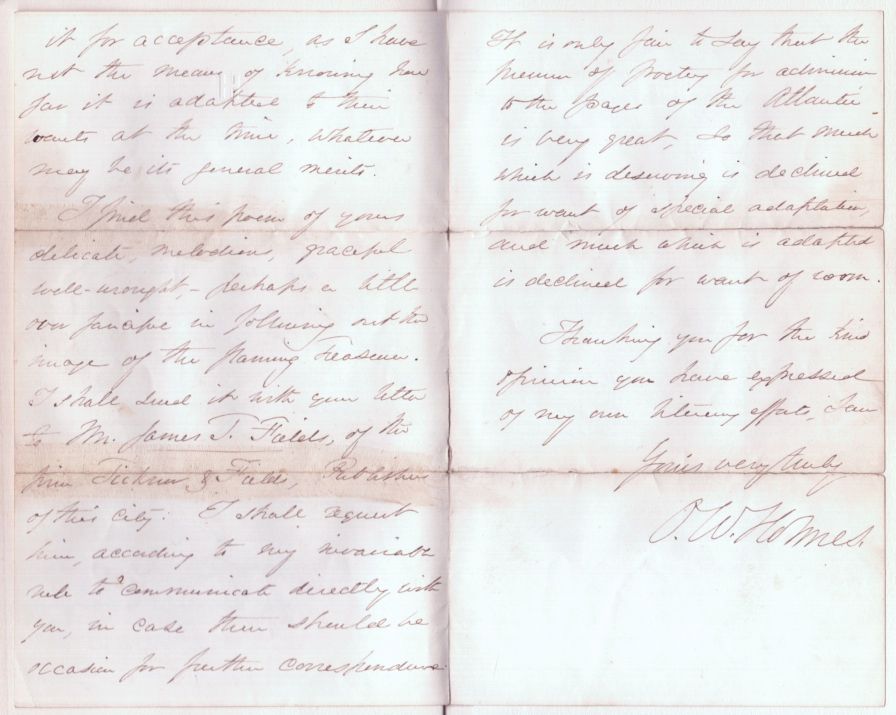 it for acceptance, as I have
not the means of knowing how
far it is adapted to their
wants at the time, whatever
may be its general merits.
I find this poem of yours
delicate, melodious, graceful
well-wrought, – perhaps a little
over fanciful in following out the
image of the flaming Treasure.
I shall send it with your letter
to Mr. James T. Fields, of the
firm Ticknor & Fields, Publishers
of this city. I shall request
him, according to my invariable
rule to communicate directly with
you, in case there should be
occasion for further correspondence.
It is only fair to say that the
pressure of poetry for admission
to the pages of the Atlantic
is very great, so that much
which is deserving is declined
for want of special adaptation,
and much which is adapted
is declined for want of room.
Thanking you for the kind
opinion you have expressed
of my own literary efforts, I am
Yours very truly
O. W. Holmes.